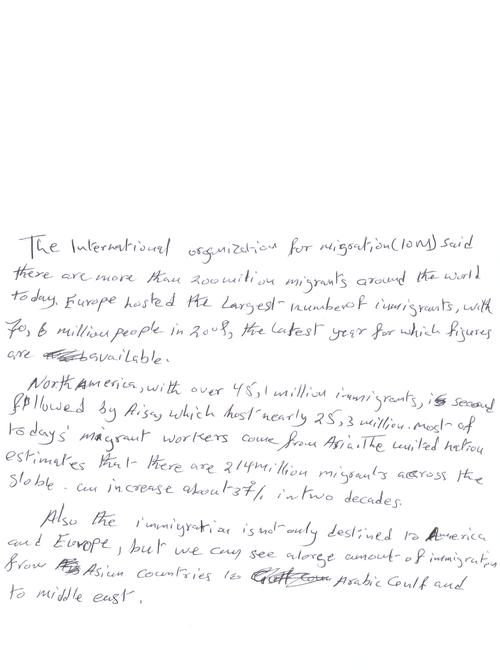 The International organization for migration (IOM) said
there are more than 200 million migrants around the world
today. Europe hosted the Largest number of immigrants, with
70,6 million people in 2005, the latest year for which figures
are available.
North America, with over 45,1 million immigrants, is second
followed by Aisa, which host nearly 25,3 million. most of
todays' migrant workers come from Asia. The united nation
estimates that there are 214 million migrants across the
globe. an increase about 37% in two decades.
Also the immigration is not only destined to America
and Europe, but we can see a large amount of immigration
from Asian countries to Arabic Gulf and
to middle east.